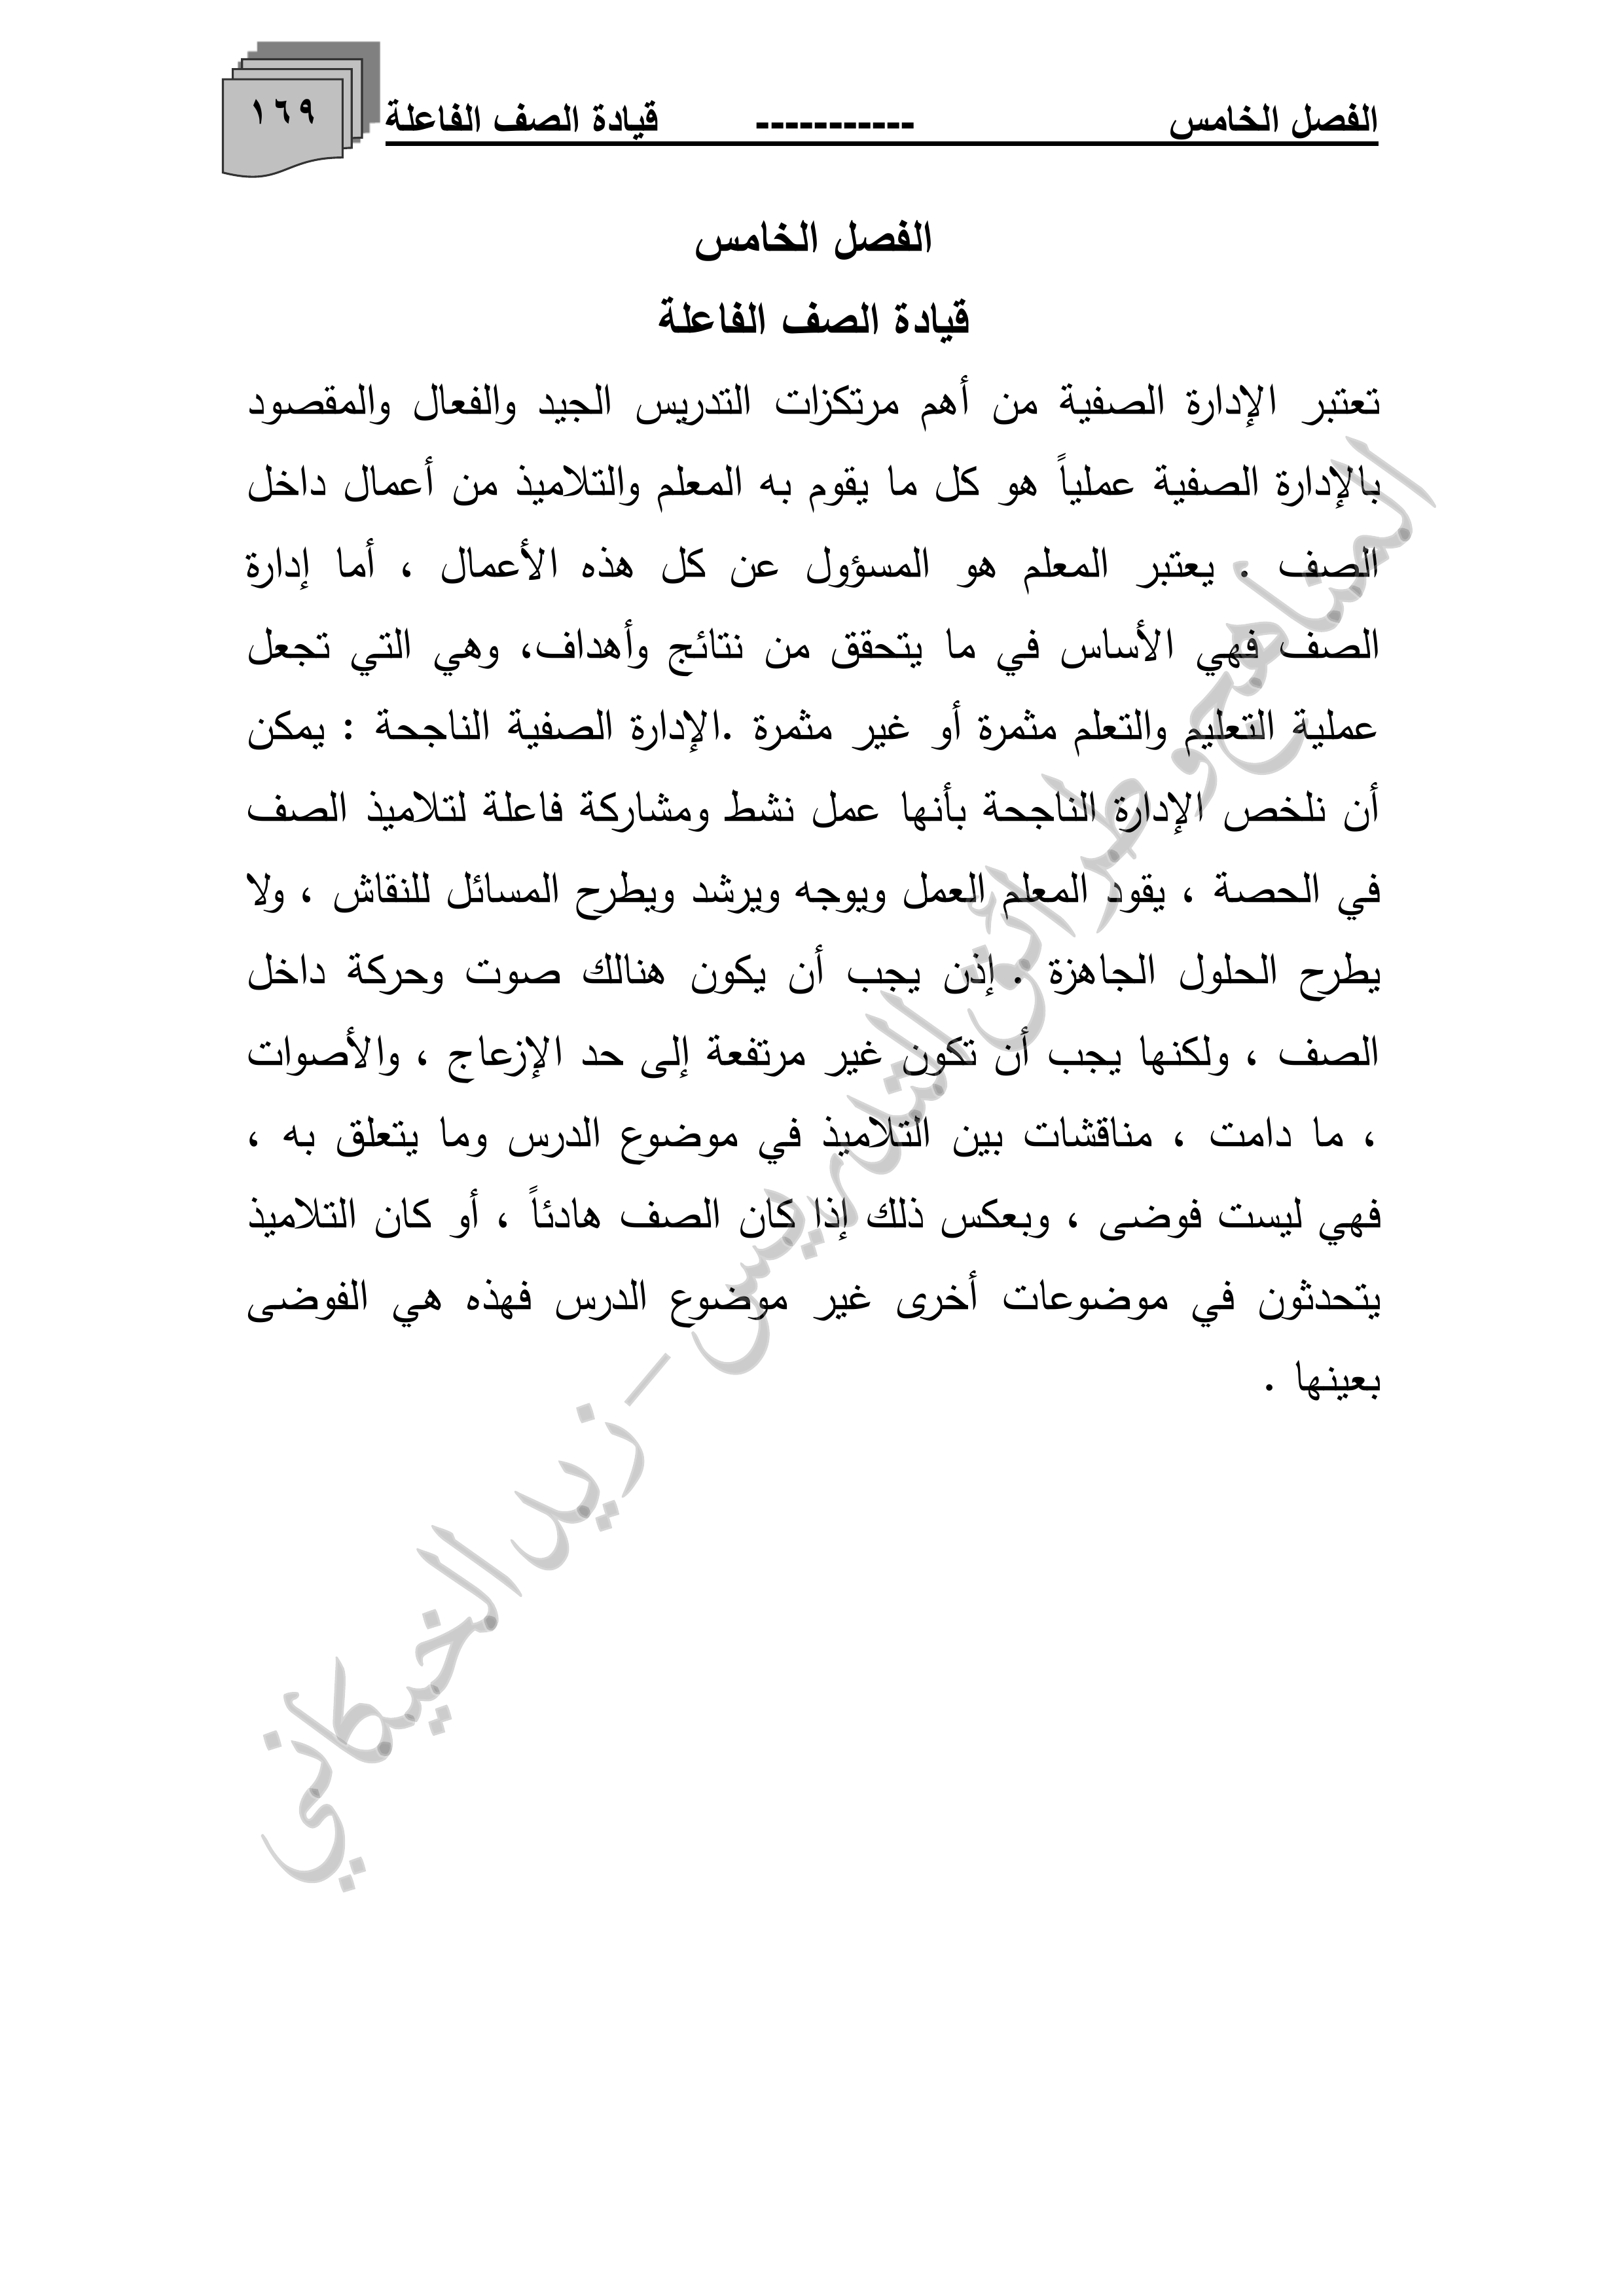 الفصل الخامس ----------- قيادة الصف الفاعلة
١٦٩
الفصل الخامس
قيادة الصف الفاعلة
تعتبر الإدارة الصفية من أهم مرتكزات التدريس الجيد والفعال والمقصود
بالإدارة الصفية عملياً هو كل ما يقوم به المعلم والتلاميذ من أعمال داخل
الصف . يعتبر المعلم هو المسؤول عن كل هذه الأعمال ، أما إدارة
الصف فهي الأساس في ما يتحقق من نتائج وأهداف، وهي التي تجعل
عملية التعليم والتعلم مثمرة أو غير مثمرة .الإدارة الصفية الناجحة : يمكن
أن نلخص الإدارة الناجحة بأنها عمل نشط ومشاركة فاعلة لتلاميذ الصف
في الحصة ، يقود المعلم العمل ويوجه ويرشد ويطرح المسائل للنقاش ، ولا
يطرح الحلول الجاهزة . إذن يجب أن يكون هنالك صوت وحركة داخل
الصف ، ولكنها يجب أن تكون غير مرتفعة إلى حد الإزعاج ، والأصوات
، ما دامت ، مناقشات بين التلاميذ في موضوع الدرس وما يتعلق به ،
فهي ليست فوضى ، وبعكس ذلك إذا كان الصف هادئاً ، أو كان التلاميذ
يتحدثون في موضوعات أخرى غير موضوع الدرس فهذه هي الفوضى
بعينها .
المناهج وطرائق التدريس - زيد الخيكاني